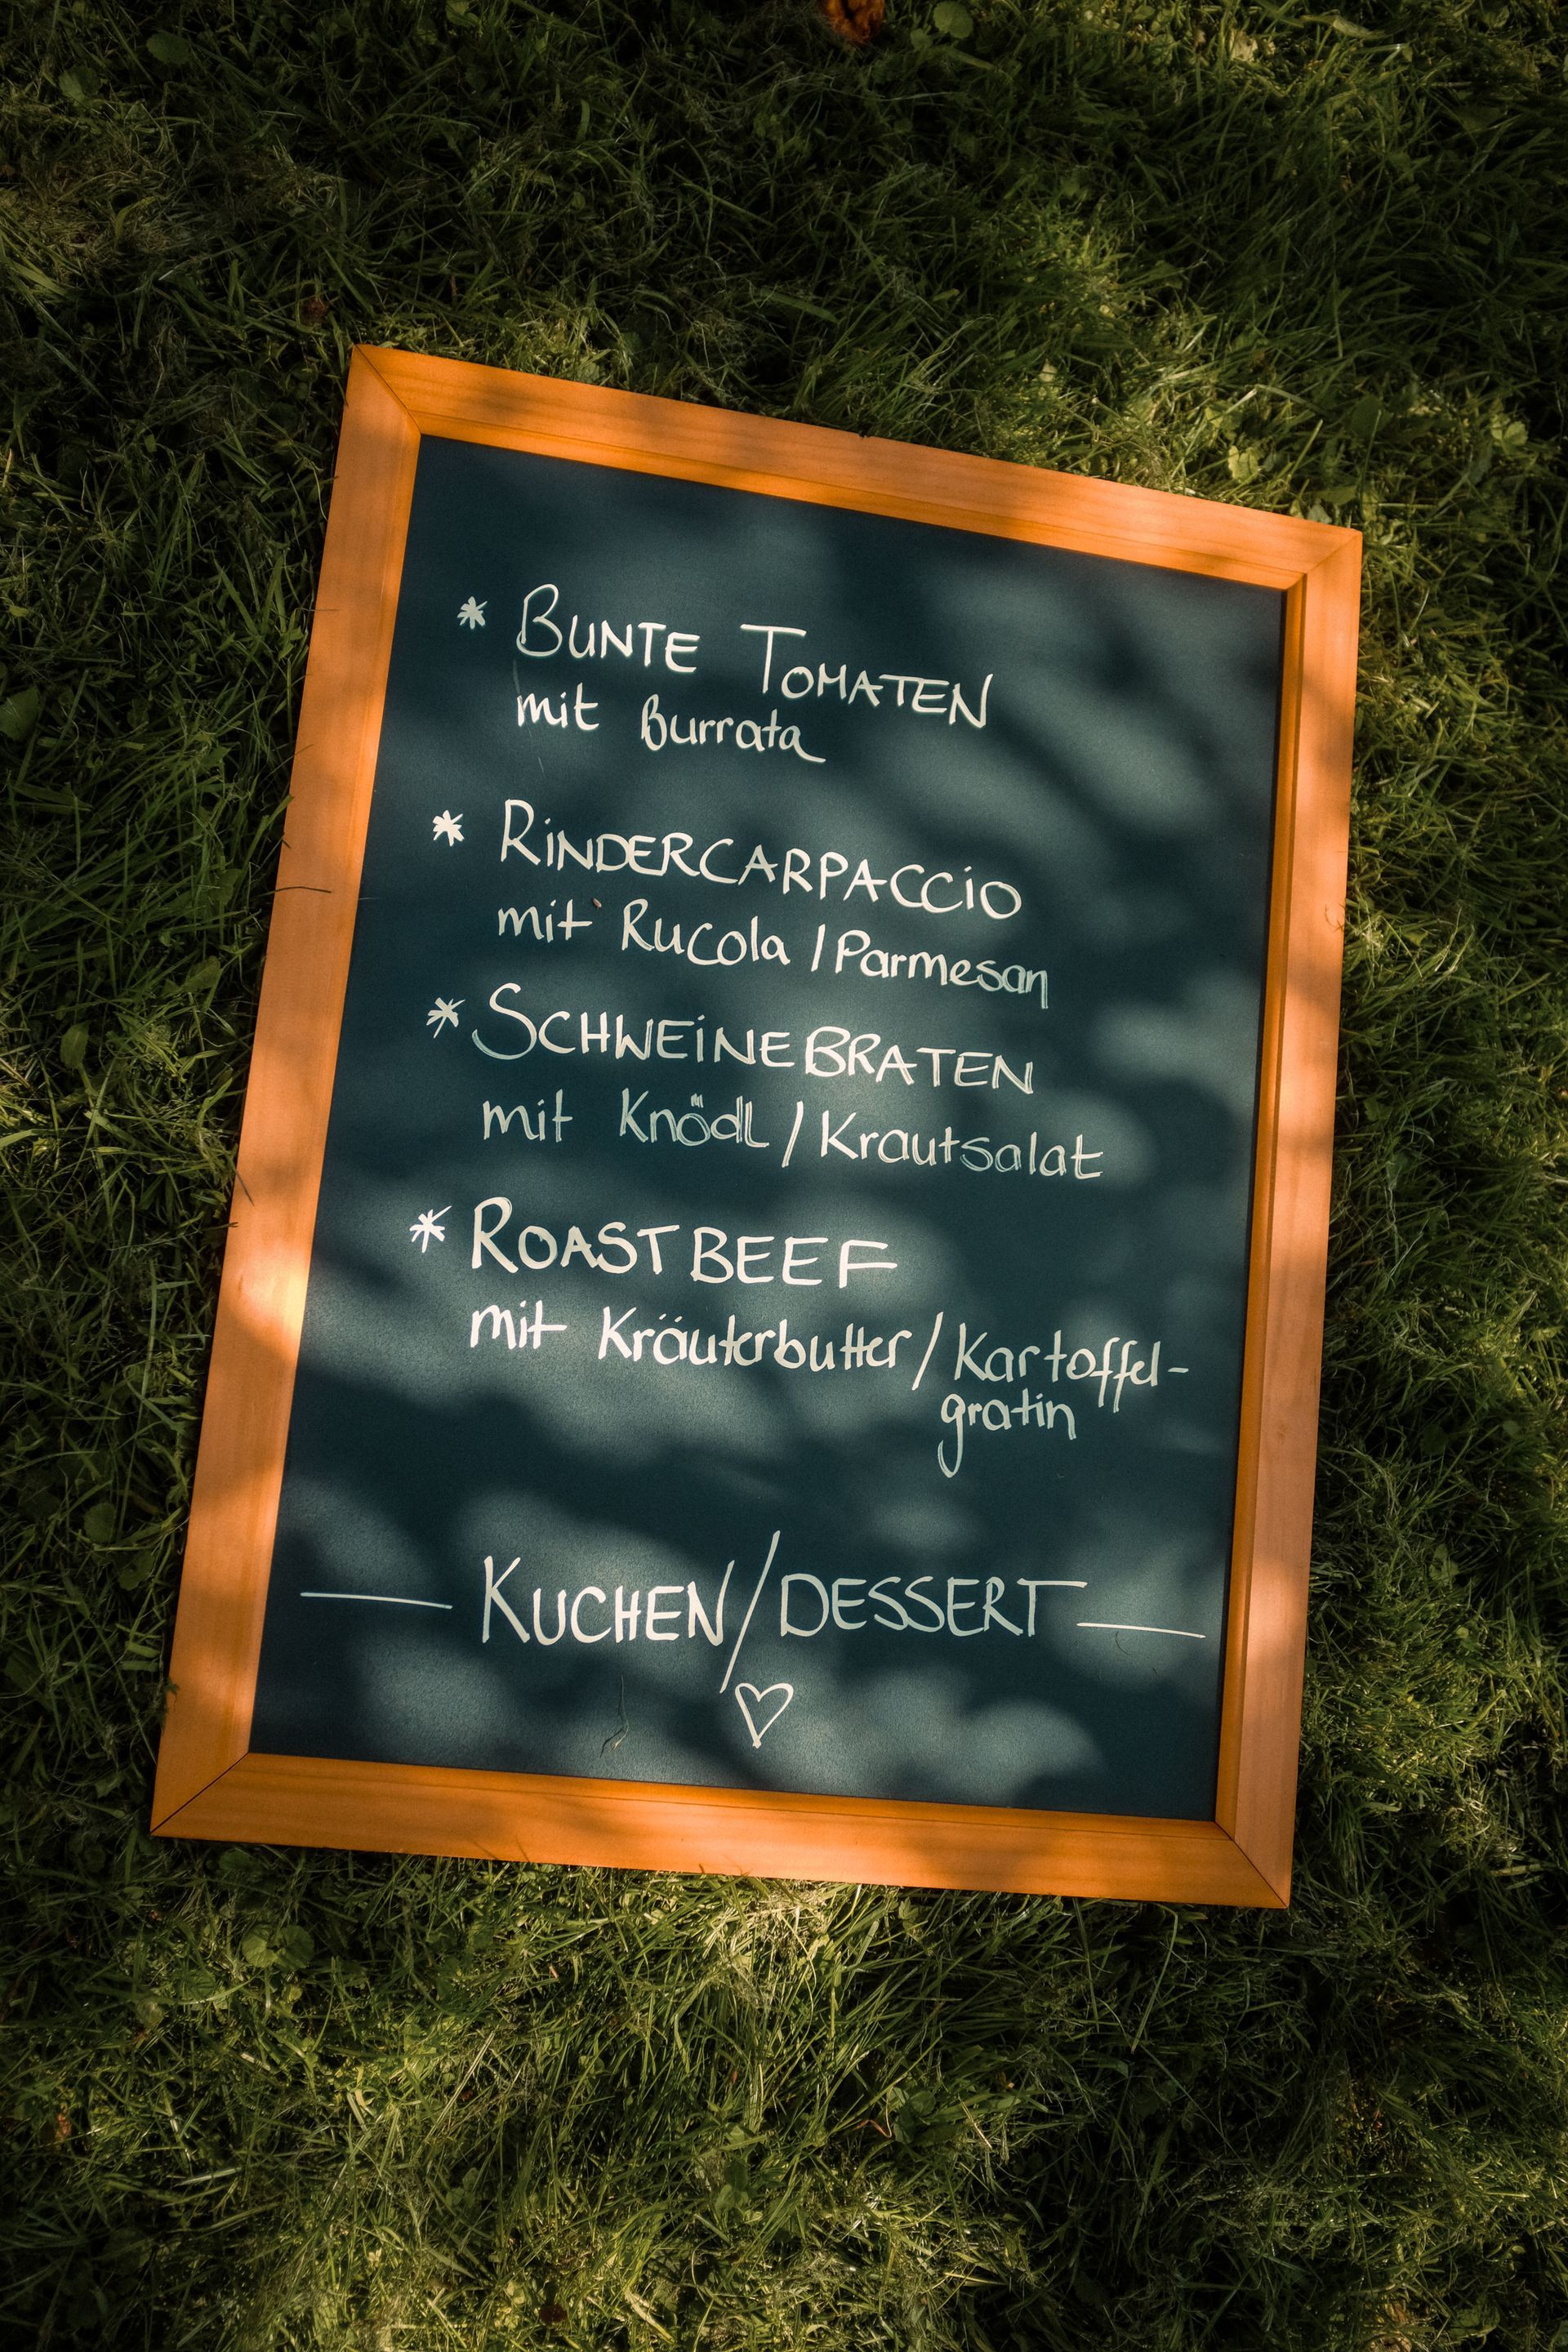 * BUNTE TOMATEN
mit Burrata
* RINDERCARPACCIO
mit Rucola / Parmesan
* SCHWEINEBRATEN
mit Knödl / Krautsalat
* ROASTBEEF
mit Kräuterbutter / Kartoffel-
gratin
— KUCHEN / DESSERT —
♡